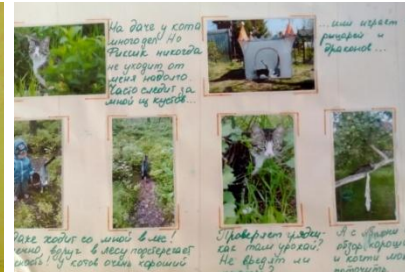 На даче у кота
много дел! Но
Фиксик никогда
не уходит от
меня надолго.
Часто следит за
мной из кустов...
...или играет
рыцарей и
драконов...
Даже ходит со мной в лес!
вдруг в лесу подстерегает
у котов очень хороший
Проверяет грядку-
как там урожай?
Не выдят ли
А с яблони
обзор хорош
и когти мож
поточить